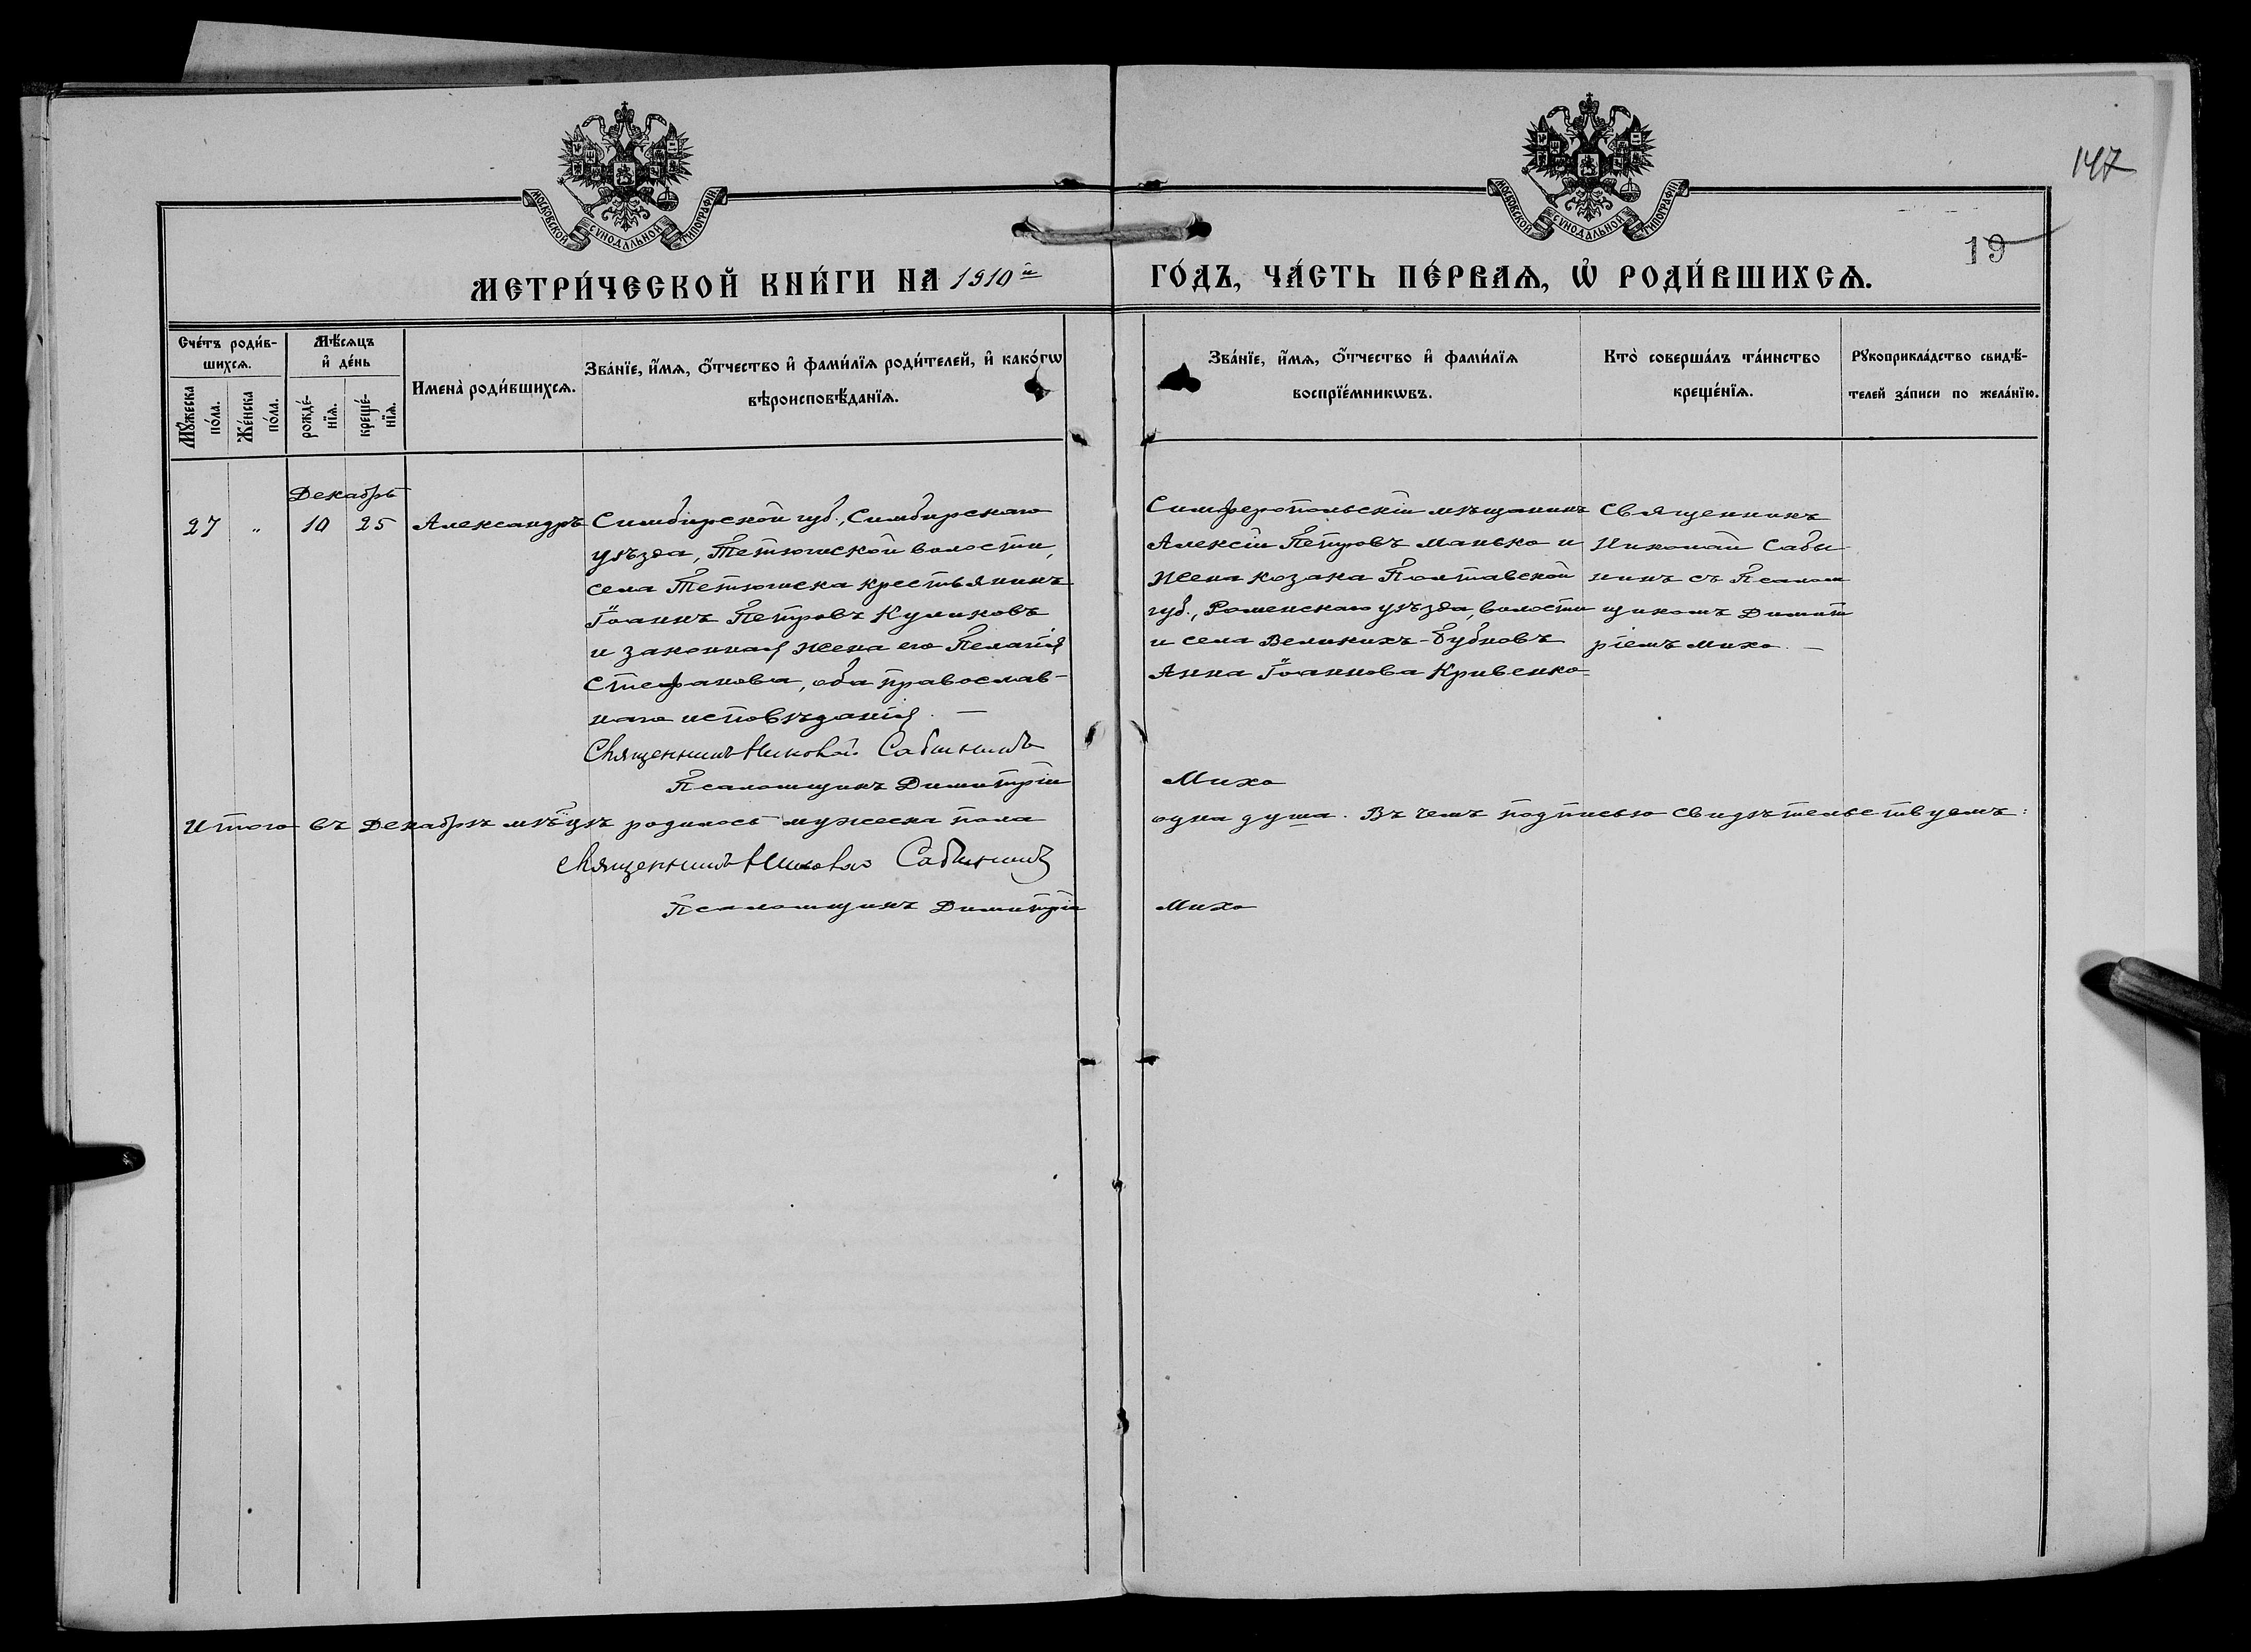 147
19
МОСКОВСКОЙ СУНОДАЛЬНОЙ ТИПОГРАФІИ
МОСКОВСКОЙ СУНОДАЛЬНОЙ ТИПОГРАФІИ
МЕТРИ́ЧЕСКОЙ КНИ́ГИ НА 1910й ГО́ДЪ, ЧА́СТЬ ПЕ́РВАѦ, Ѽ РОДИ́ВШИХСѦ.
Сче́тъ роди́в-
шихсѧ.
Мꙋ́жеска
по́ла.
Же́нска
по́ла.
Мѣ́сѧцъ
и҆ де́нь
рожде́-
нїѧ.
креще́-
нїѧ.
Имена̀ роди́вшихсѧ.
Зва́нїе, и҆́мѧ, ѻ҆́тчество и҆ фами́лїѧ роди́телей, и҆ како́гѡ
вѣроисповѣ́данїѧ.
Зва́нїе, и҆́мѧ, ѻ҆́тчество и҆ фами́лїѧ
воспрїе́мникѡвъ.
Кто̀ соверша́лъ та́инство
креще́нїѧ.
Рꙋкоприкла́дство свидѣ́-
телей за́писи по жела́нїю.
Декабрь
27 „ 10 25 Александръ
Симбирской губ., Симбирскаго
уѣзда, Тетюшской волости,
села Тетюшска крестьянинъ
Іоаннъ Петровъ Куликовъ
и законная жена его Пелагія
Стефанова, оба православ-
наго исповѣданія. —
Священникъ Николай Сабининъ
Псаломщикъ Димитрій Михо
Симферопольскій мѣщанинъ
Алексій Петровъ Манько и
жена козака Полтавской
губ., Роменскаго уѣзда, волости
и села Великихъ-Бубновъ
Анна Іоаннова Кривенко
Священникъ
Николай Саби
нинъ съ Псалом
щикомъ Димит
ріемъ Михо. —
Итого въ Декабрѣ мѣсяцѣ родилось мужеска пола одна душа. Въ чемъ подписью свидѣтельствуемъ:
Священникъ Николай Сабининъ
Псаломщикъ Димитрій Михо